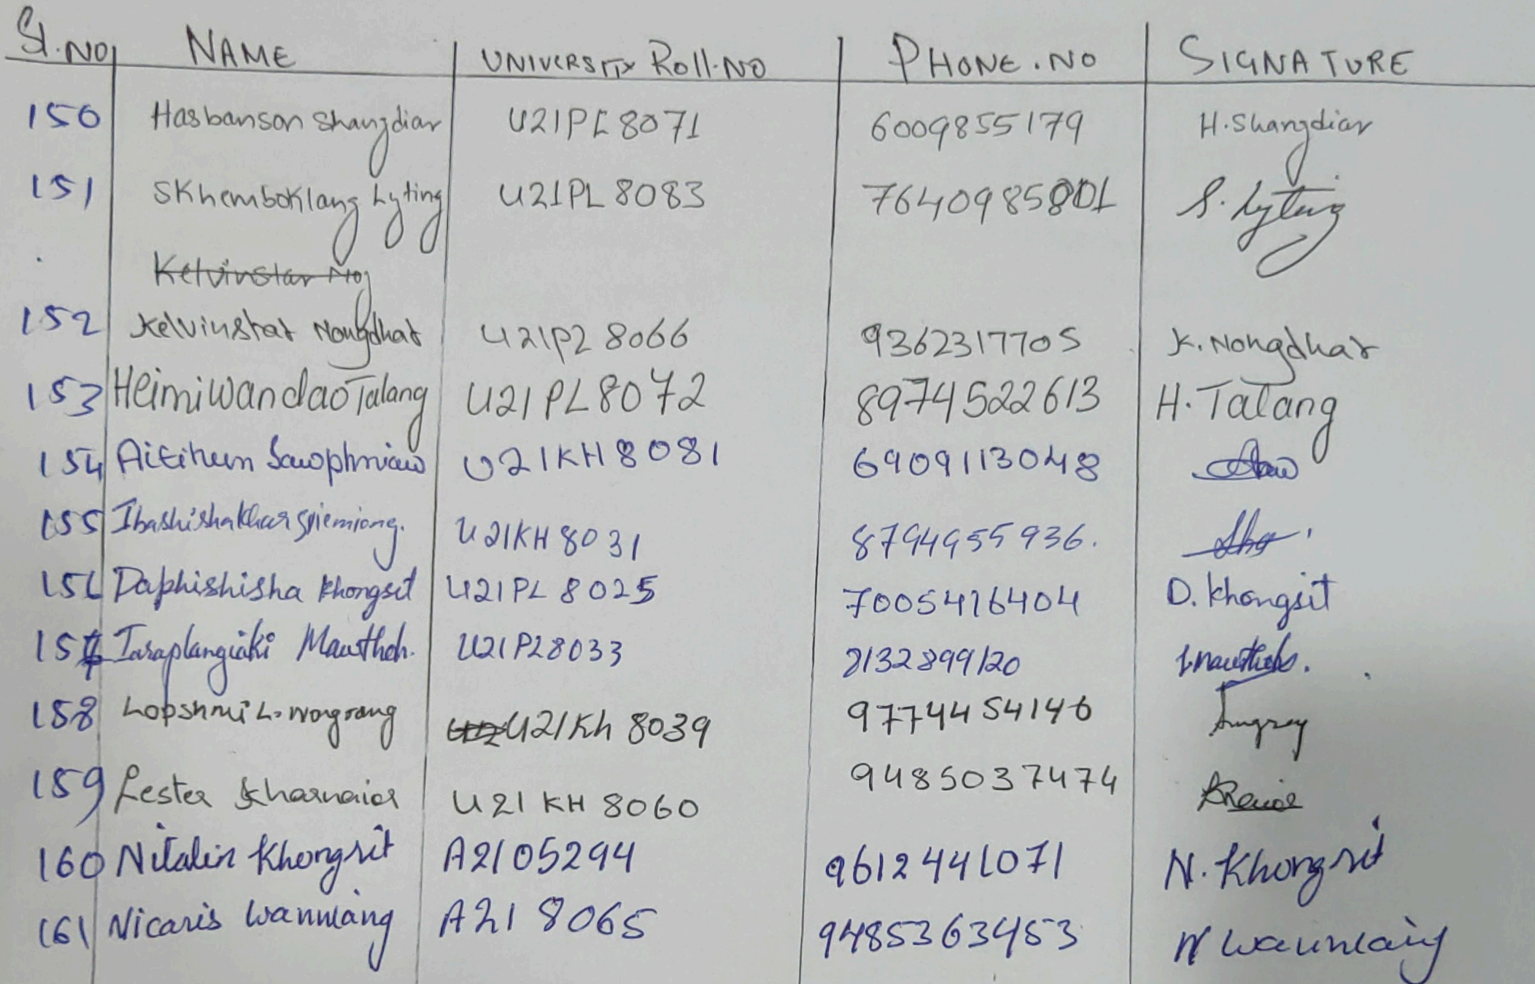 Sl.NO NAME UNIVERSITY Roll.NO PHONE.NO SIGNATURE
150 Hasbanson Shangdiar U21PL8071 6009855179 H.Shangdiar
151 SKhemboklang Lyting U21PL8083 7640985801 S. Lyting
Kelvinstar No
152 Kelvinstar Nongdhar U21PL8066 9362317705 K. Nongdhar
153 Heimiwandao Talang U21PL8072 8974522613 H. Talang
154 U21KH8081 6909113048
155 U21KH8031 8794955936.
156 Daphishisha Khongsit U21PL8025 7005416404 D. Khongsit
157 U21PL8033 8132899120
158 U21Kh 8039 9774454146
159 Lester Kharnaior U21KH8060 9485037474
160 Nitalin Khongsit A2105294 9612441071 N. Khongsit
161 Nicaris Wanniang A218065 9485363453 N Wanniang